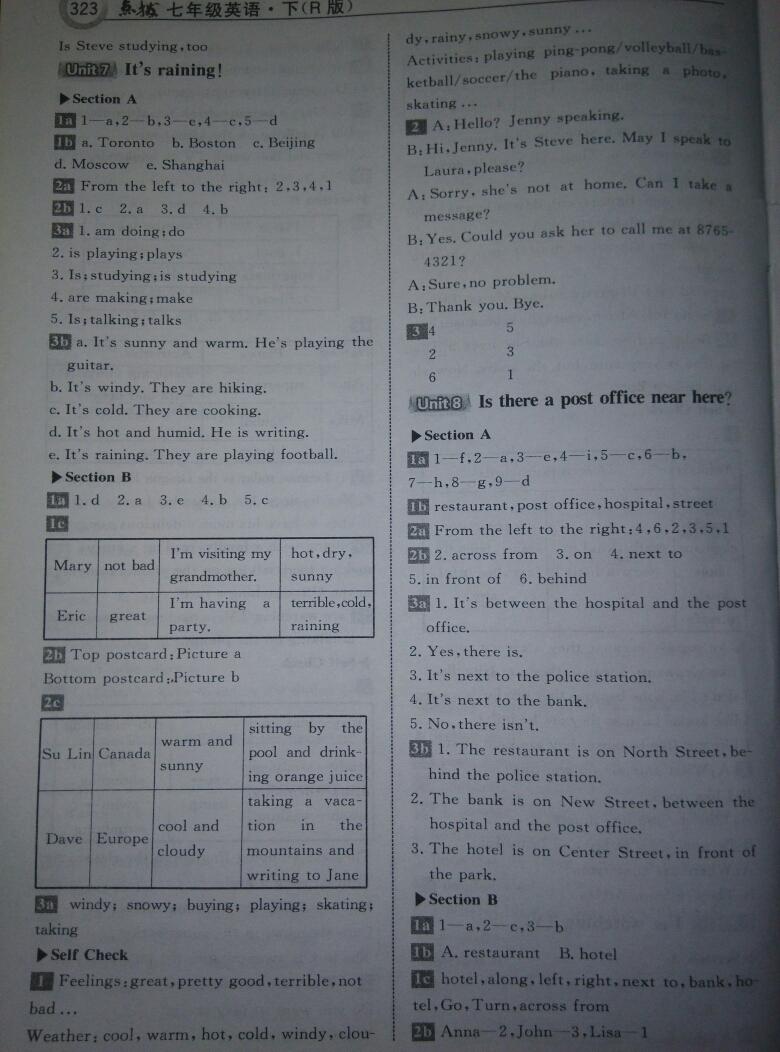 323 点拨 七年级英语·下(R版)
Is Steve studying,too
Unit 7 It's raining!
▶Section A
1a 1—a,2—b,3—e,4—c,5—d
1b a. Toronto b. Boston c. Beijing
d. Moscow e. Shanghai
2a From the left to the right: 2,3,4,1
2b 1. c 2. a 3. d 4. b
3a 1. am doing;do
2. is playing;plays
3. Is;studying;is studying
4. are making;make
5. Is;talking;talks
3b a. It's sunny and warm. He's playing the
guitar.
b. It's windy. They are hiking.
c. It's cold. They are cooking.
d. It's hot and humid. He is writing.
e. It's raining. They are playing football.
▶Section B
1a 1. d 2. a 3. e 4. b 5. c
1c
Mary not bad I'm visiting my hot,dry,
grandmother. sunny
Eric great I'm having a terrible,cold,
party. raining
2b Top postcard:Picture a
Bottom postcard:,Picture b
2c
Su Lin Canada warm and sunny sitting by the
pool and drink-
ing orange juice
Dave Europe cool and cloudy taking a vaca-
tion in the
mountains and
writing to Jane
3a windy; snowy; buying; playing; skating;
taking
▶Self Check
1 Feelings:great,pretty good,terrible,not
bad ...
Weather: cool, warm, hot, cold, windy, clou-
dy,rainy,snowy,sunny ...
Activities: playing ping-pong/volleyball/bas-
ketball/soccer/the piano, taking a photo,
skating ...
2 A:Hello? Jenny speaking.
B:Hi,Jenny. It's Steve here. May I speak to
Laura,please?
A:Sorry, she's not at home. Can I take a
message?
B:Yes. Could you ask her to call me at 8765-
4321?
A:Sure,no problem.
B:Thank you. Bye.
3 4 5
2 3
6 1
Unit 8 Is there a post office near here?
▶Section A
1a 1—f,2—a,3—e,4—i,5—c,6—b,
7—h,8—g,9—d
1b restaurant,post office,hospital,street
2a From the left to the right:4,6,2,3,5,1
2b 2. across from 3. on 4. next to
5. in front of 6. behind
3a 1. It's between the hospital and the post
office.
2. Yes,there is.
3. It's next to the police station.
4. It's next to the bank.
5. No,there isn't.
3b 1. The restaurant is on North Street,be-
hind the police station.
2. The bank is on New Street, between the
hospital and the post office.
3. The hotel is on Center Street,in front of
the park.
▶Section B
1a 1—a,2—c,3—b
1b A. restaurant B. hotel
1c hotel,along,left,right,next to,bank,ho-
tel,Go,Turn,across from
2b Anna—2,John—3,Lisa—1